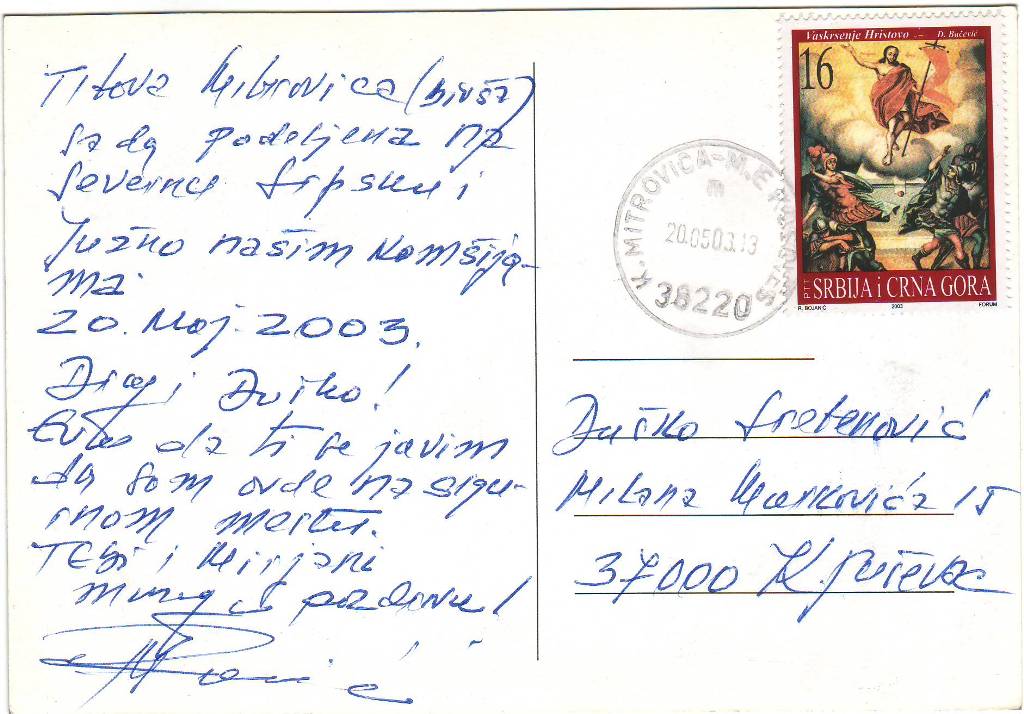 Titova Mitrovica (bivša)
sada podeljena na
severnu srpsku i
Južno našim komšija-
ma
20. Maj. 2003.
Dragi Duško!
Evo da ti se javim
da sam ovde na sigu-
rnom mestu.
Tebi i Mirjani
mnogo pozdrava!
Vaskrsenje Hristovo - D. Bučević
16
PTT SRBIJA i CRNA GORA
R. BOJANIĆ 2003 FORUM
K. MITROVICA-M.E
m
20.0503.13
38220
Duško Sretenović
Milana Markovića 15
37000 Kruševac